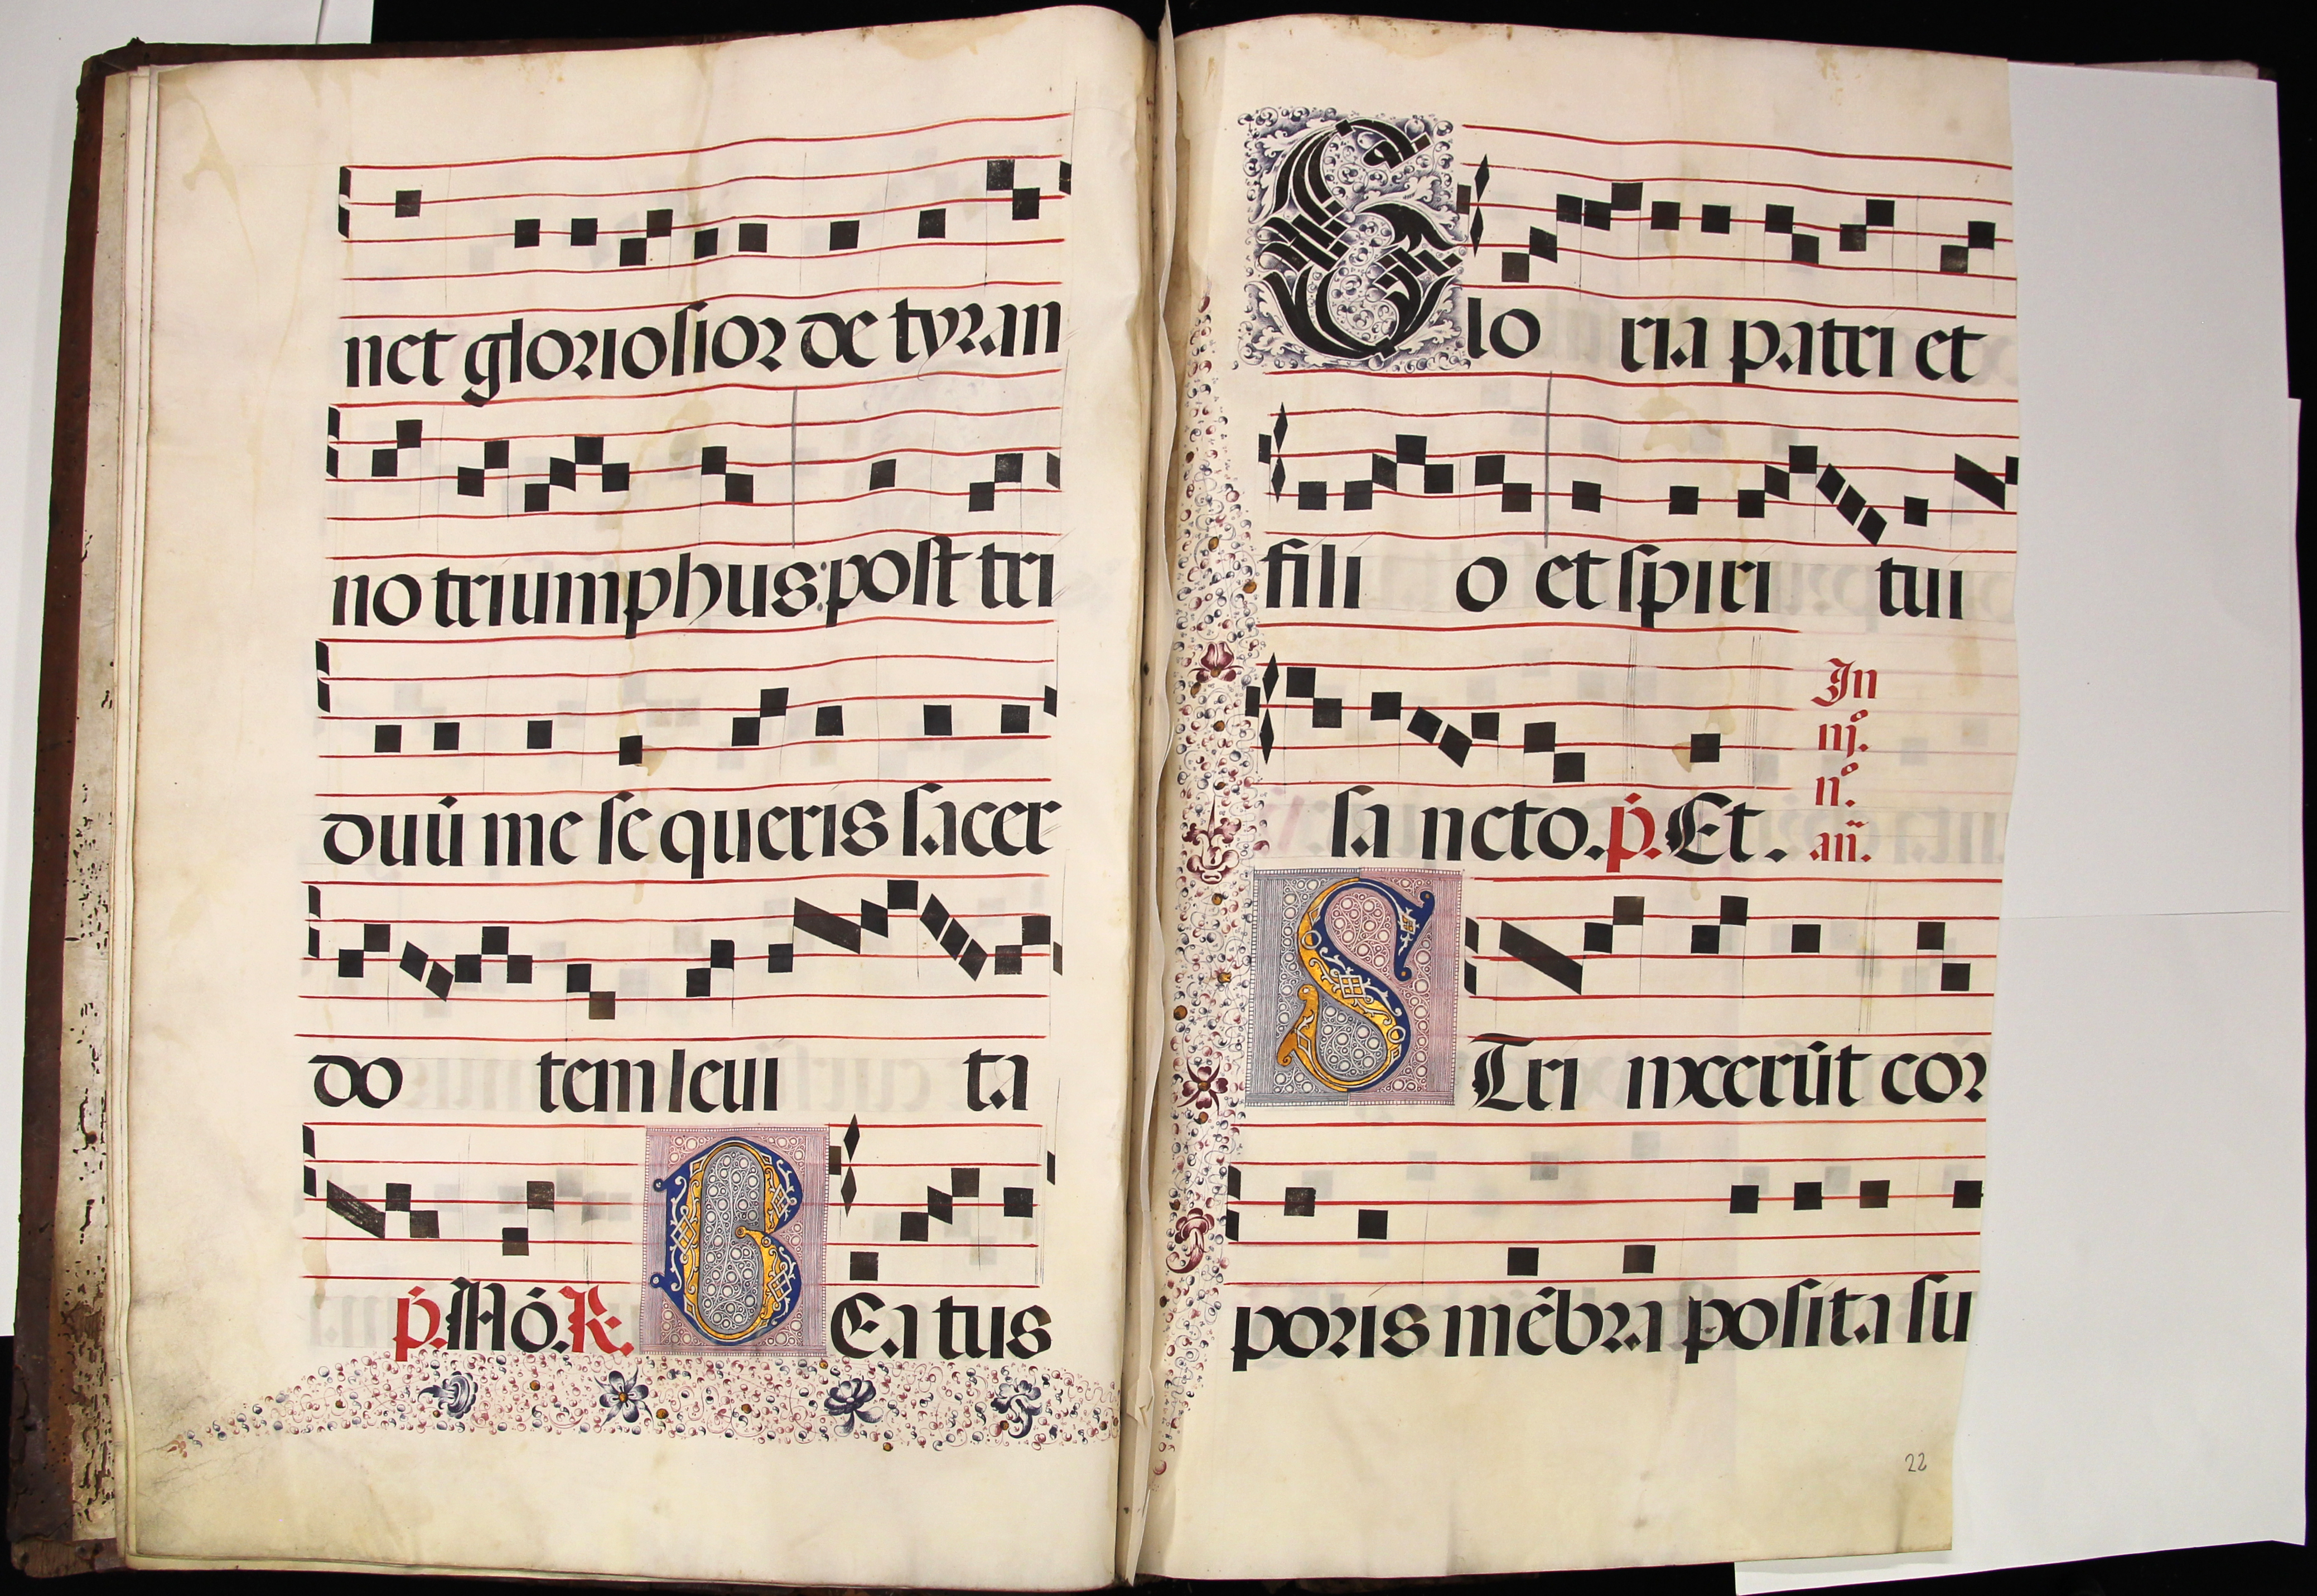 net gloriosior de tyran
no triumphus: post tri
duũ me sequeris sacer
do tem leui ta
p̃. Mõ. R. BEatus
Glo ria patri et
filio et spiri tui
sancto. p̃. Et.
In
iijº.
nº.
añ.
STrinxerũt cor
poris mẽbra posita su
22